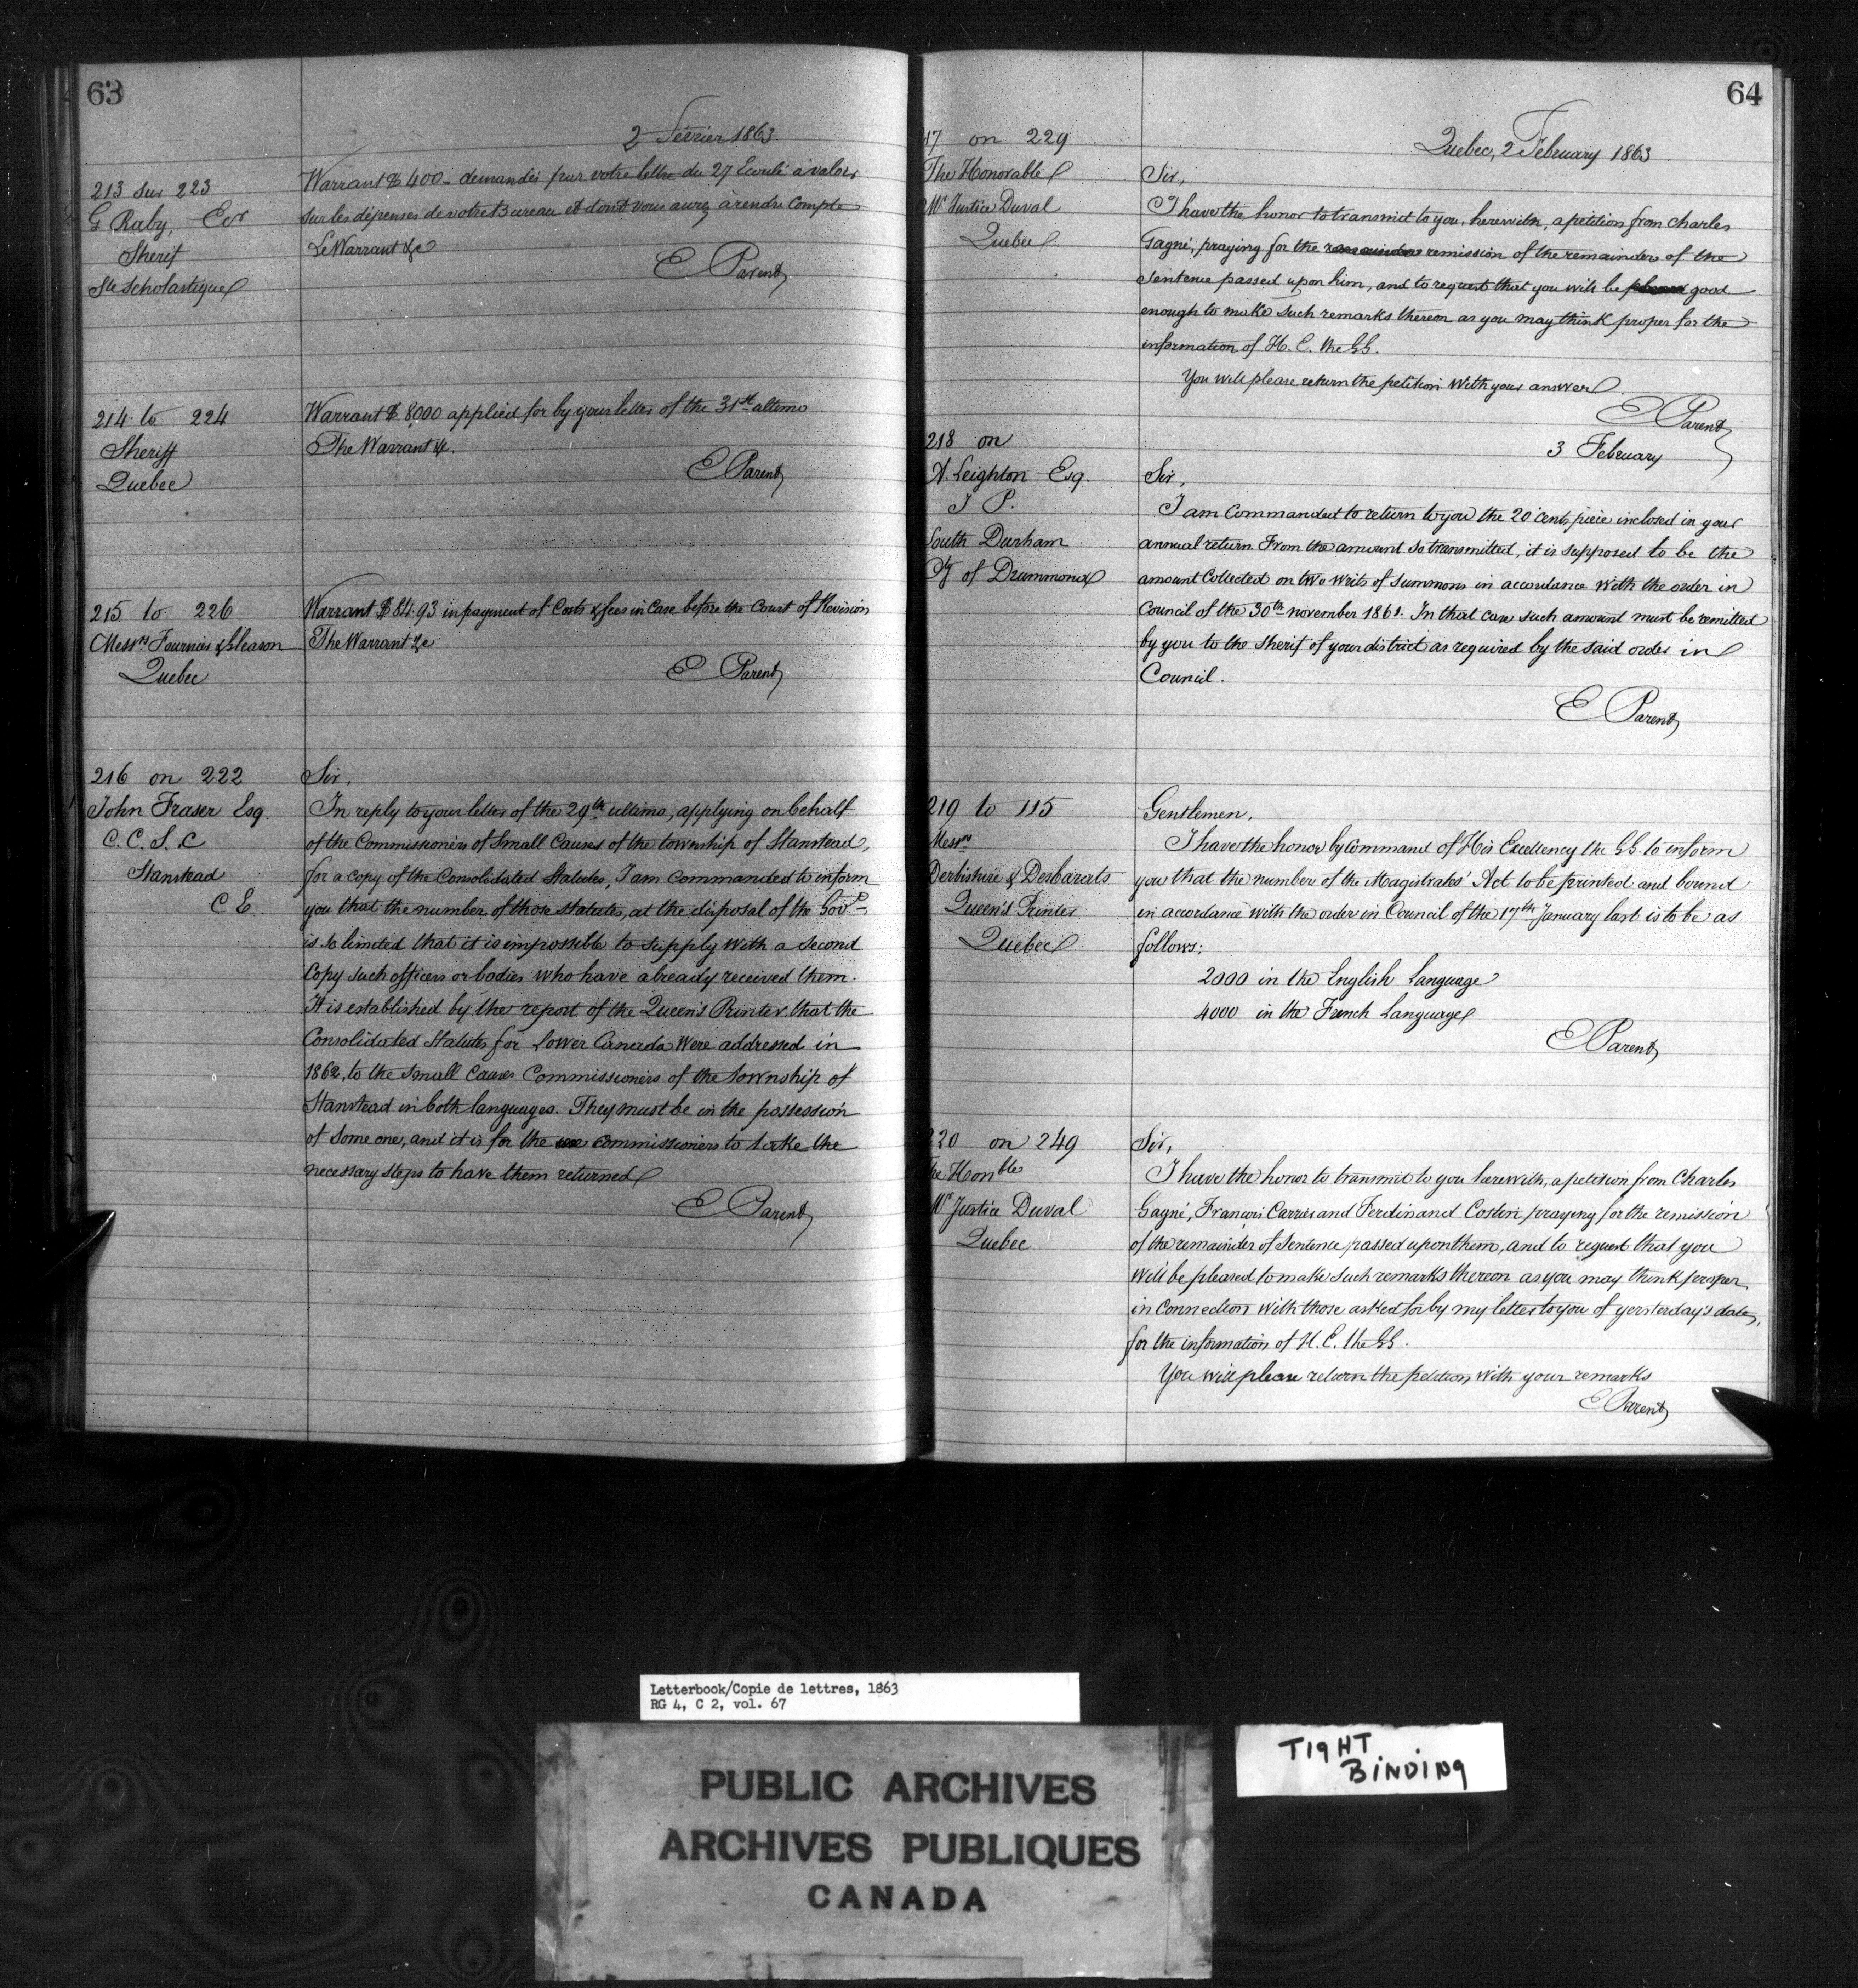 63
2 Février 1863
213 sur 223
G Raby, Ecr
Sherif
Ste Scholastique
Warrant $400 - demandés par votre lettre du 27 Ecoulé à valoir
sur les dépenses de votre Bureau et dont vous aurez à rendre Compte
Le Warrant &c
E Parent
214 to 224
Sheriff
Quebec
Warrant $8,000 applied for by your letter of the 31st ultimo.
The Warrant &c.
E Parent
215 to 226
Messrs Fournier & Gleason
Quebec
Warrant $84.93 in payment of Costs & fees in Case before the Court of Revision
The Warrant &c
E Parent
216 on 222
John Fraser Esq.
C. C. S. C
Stanstead
C E
Sir,
In reply to your letter of the 29th ultimo, applying on behalf
of the Commissioners of Small Causes of the township of Stanstead,
for a copy of the Consolidated Statutes, I am commanded to inform
you that the number of those Statutes, at the disposal of the Govt
is so limited that it is impossible to supply with a second
Copy such officers or bodies who have already received them.
It is established by the report of the Queen's Printer that the
Consolidated Statutes for Lower Canada were addressed in
1862, to the Small Causes Commissioners of the Township of
Stanstead in both languages. They must be in the possession
of some one, and it is for the commissioners to take the
necessary steps to have them returned
E Parent
64
Quebec, 2 February 1863
17 on 229
The Honorable
Mr Justice Duval
Quebec
Sir,
I have the honor to transmit to you, herewith, a petition from Charles
Gagné, praying for the remainder remission of the remainder of the
Sentence passed upon him, and to request that you will be pleased good
enough to make such remarks thereon as you may think proper for the
information of H. E. the GG.
You will please return the petition with your answer
E Parent
3 February
218 on
A. Leighton Esq.
J P.
South Durham
Cy of Drummond
Sir,
I am Commanded to return to you the 20 cents piece inclosed in your
annual return. From the amount so transmitted, it is supposed to be the
amount Collected on two writs of Summons in accordance with the order in
Council of the 30th november 1861. In that case such amount must be remitted
by you to the Sherif of your district as required by the said order in
Council.
E Parent
219 to 115
Messrs
Derbishire & Desbarats
Queen's Printer
Quebec
Gentlemen,
I have the honor by Command of His Excellency the GG. to inform
you that the number of the Magistrates' Act to be printed and bound
in accordance with the order in Council of the 17th January last is to be as
follows:
2000 in the English Language
4000 in the French Language
E Parent
220 on 249
The Honble
Mr Justice Duval
Quebec
Sir,
I have the honor to transmit to you herewith, a petition from Charles
Gagné, François Carrier and Ferdinand Costin praying for the remission
of the remainder of Sentence passed upon them, and to request that you
will be pleased to make such remarks thereon as you may think proper
in Connection with those asked for by my letter to you of yersterday's date,
for the information of H. E. the GG.
You will please return the petition with your remarks
E Parent
Letterbook/Copie de lettres, 1863
RG 4, C 2, vol. 67
TIGHT
BINDING
PUBLIC ARCHIVES
ARCHIVES PUBLIQUES
CANADA